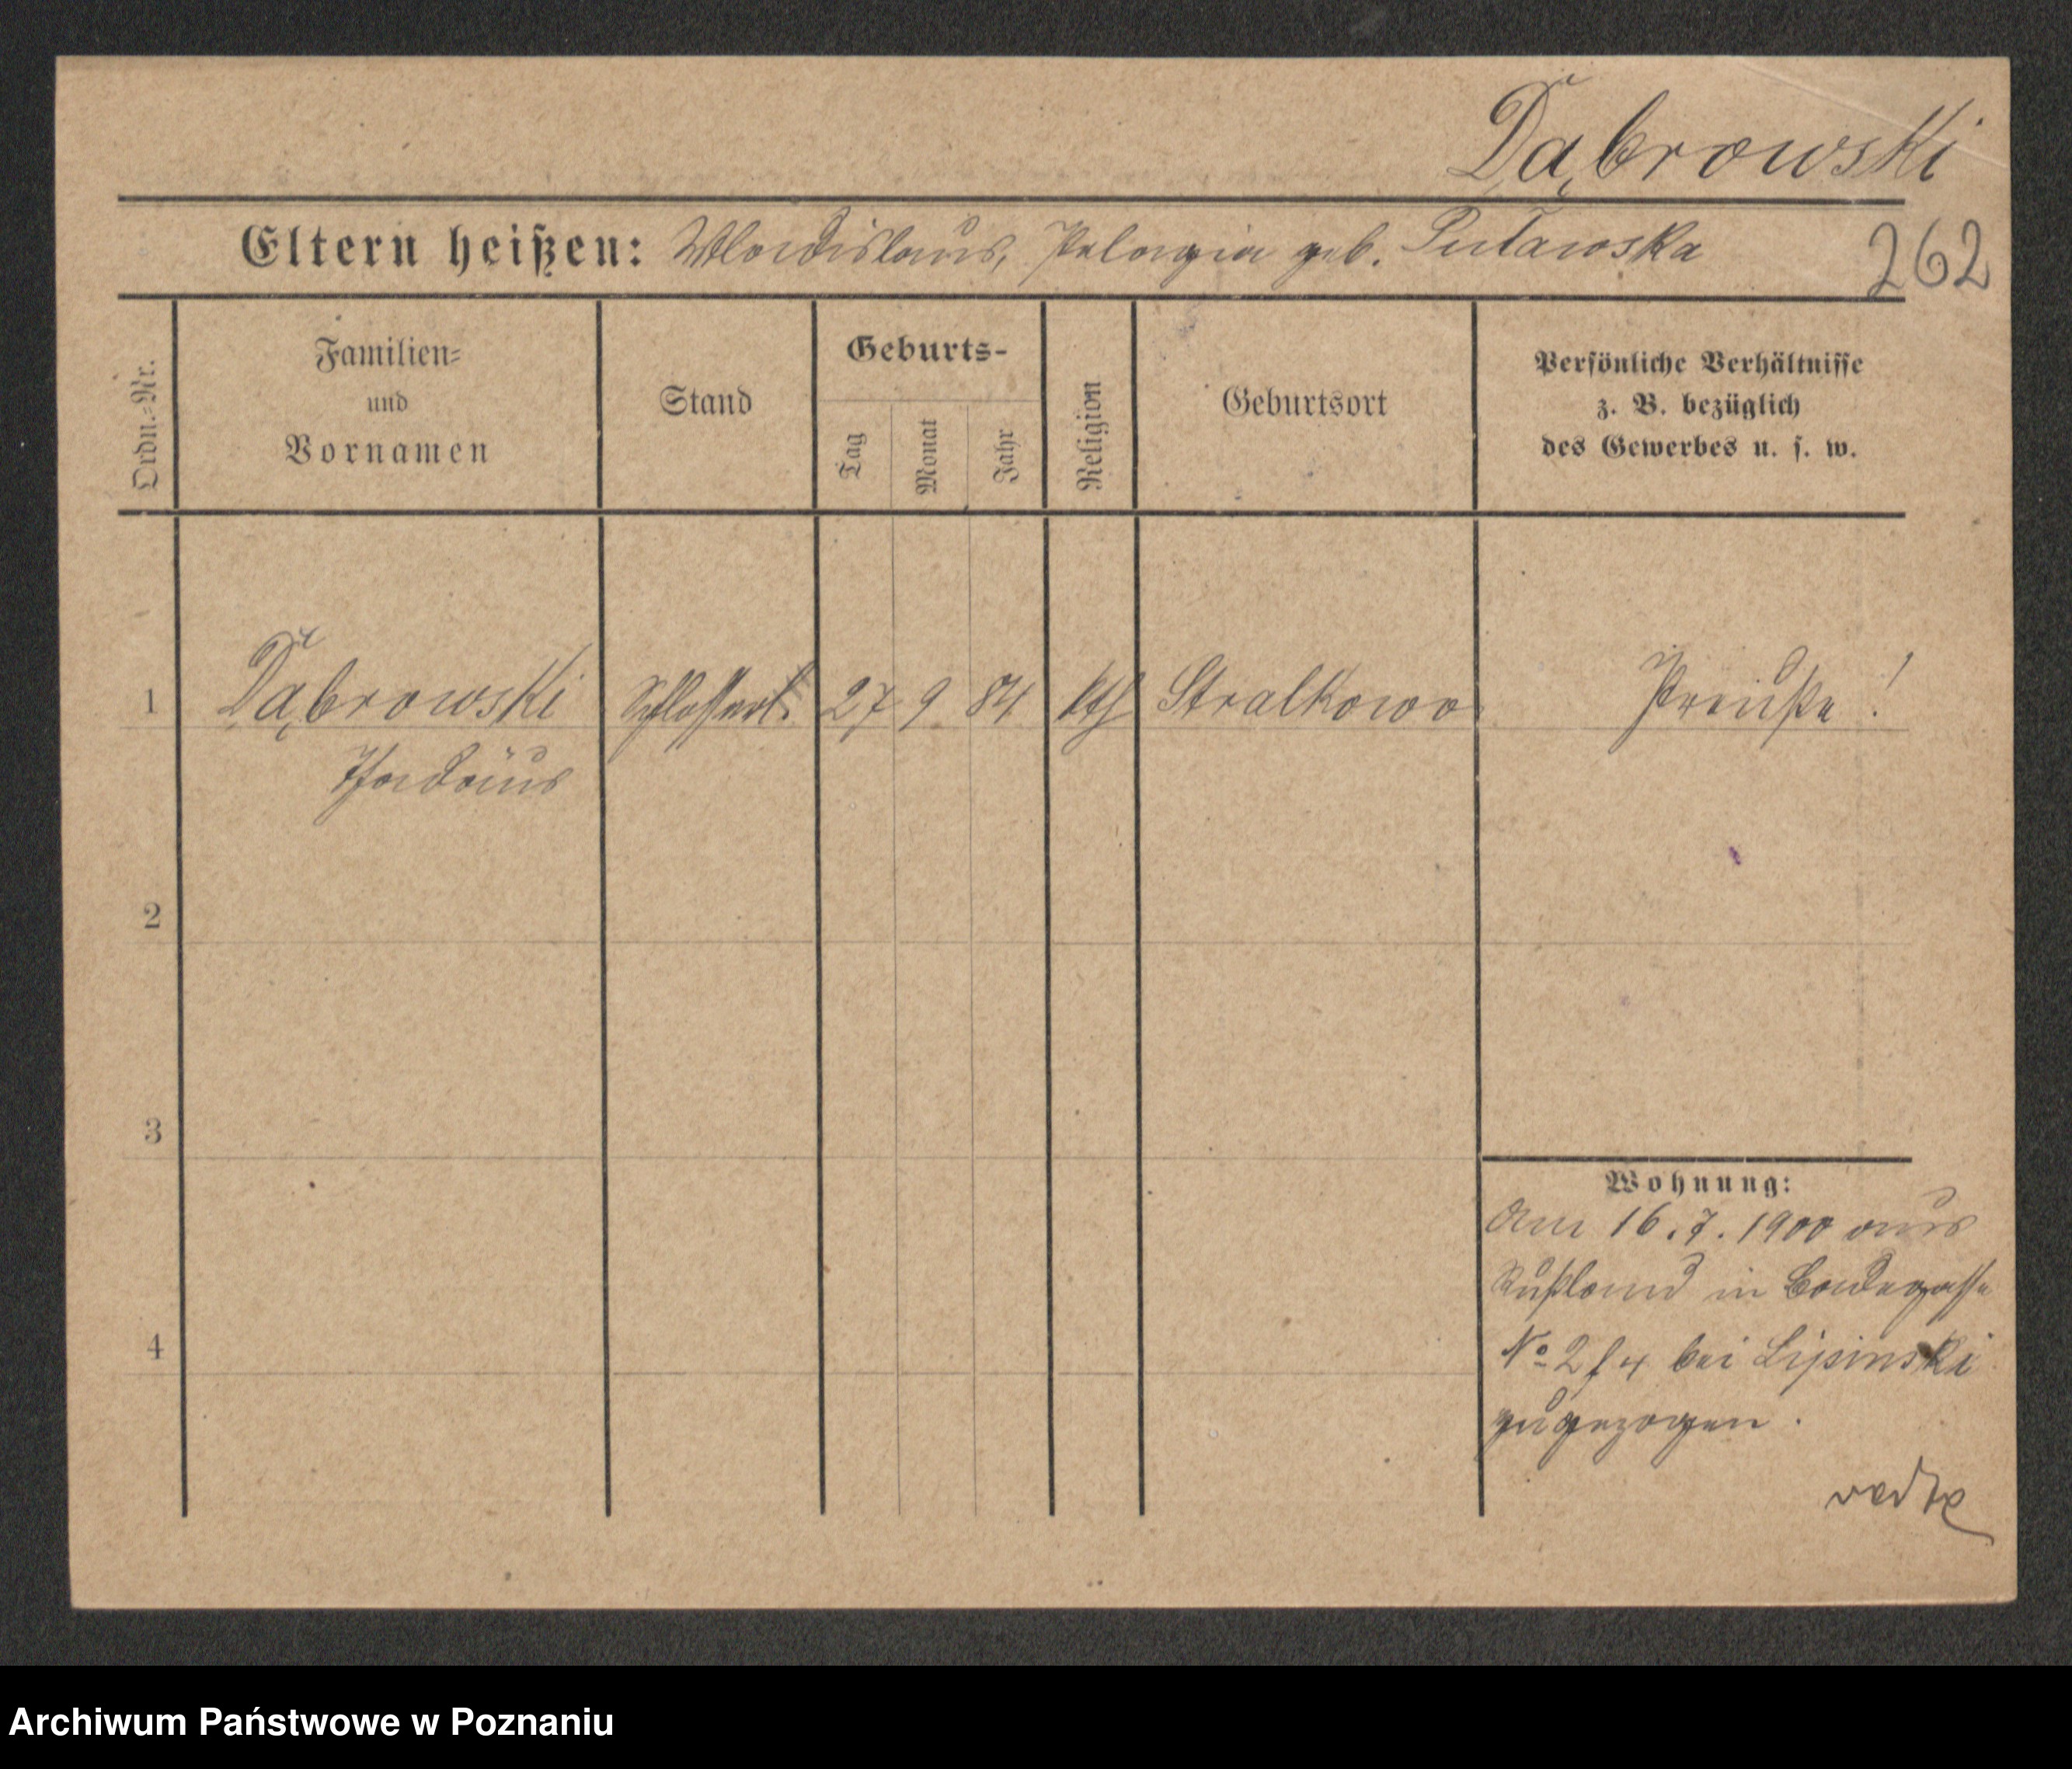 Dąbrowski
Eltern heißen: Wladislaus, Pelagia geb. Pulawska
262
Ordn.=Nr.
Familien=
und
Vornamen
Stand
Geburts-
Tag
Monat
Jahr
Religion
Geburtsort
Persönliche Verhältnisse
z. B. bezüglich
des Gewerbes u. s. w.
1 Dąbrowski Schlosserl. 27 9 84 kth Stralkowo Preuße!
Thadäus
2
3
4
Wohnung:
Am 16.7.1900 aus
Rußland in
No 2 bei Lipinski
zugezogen.
Archiwum Państwowe w Poznaniu